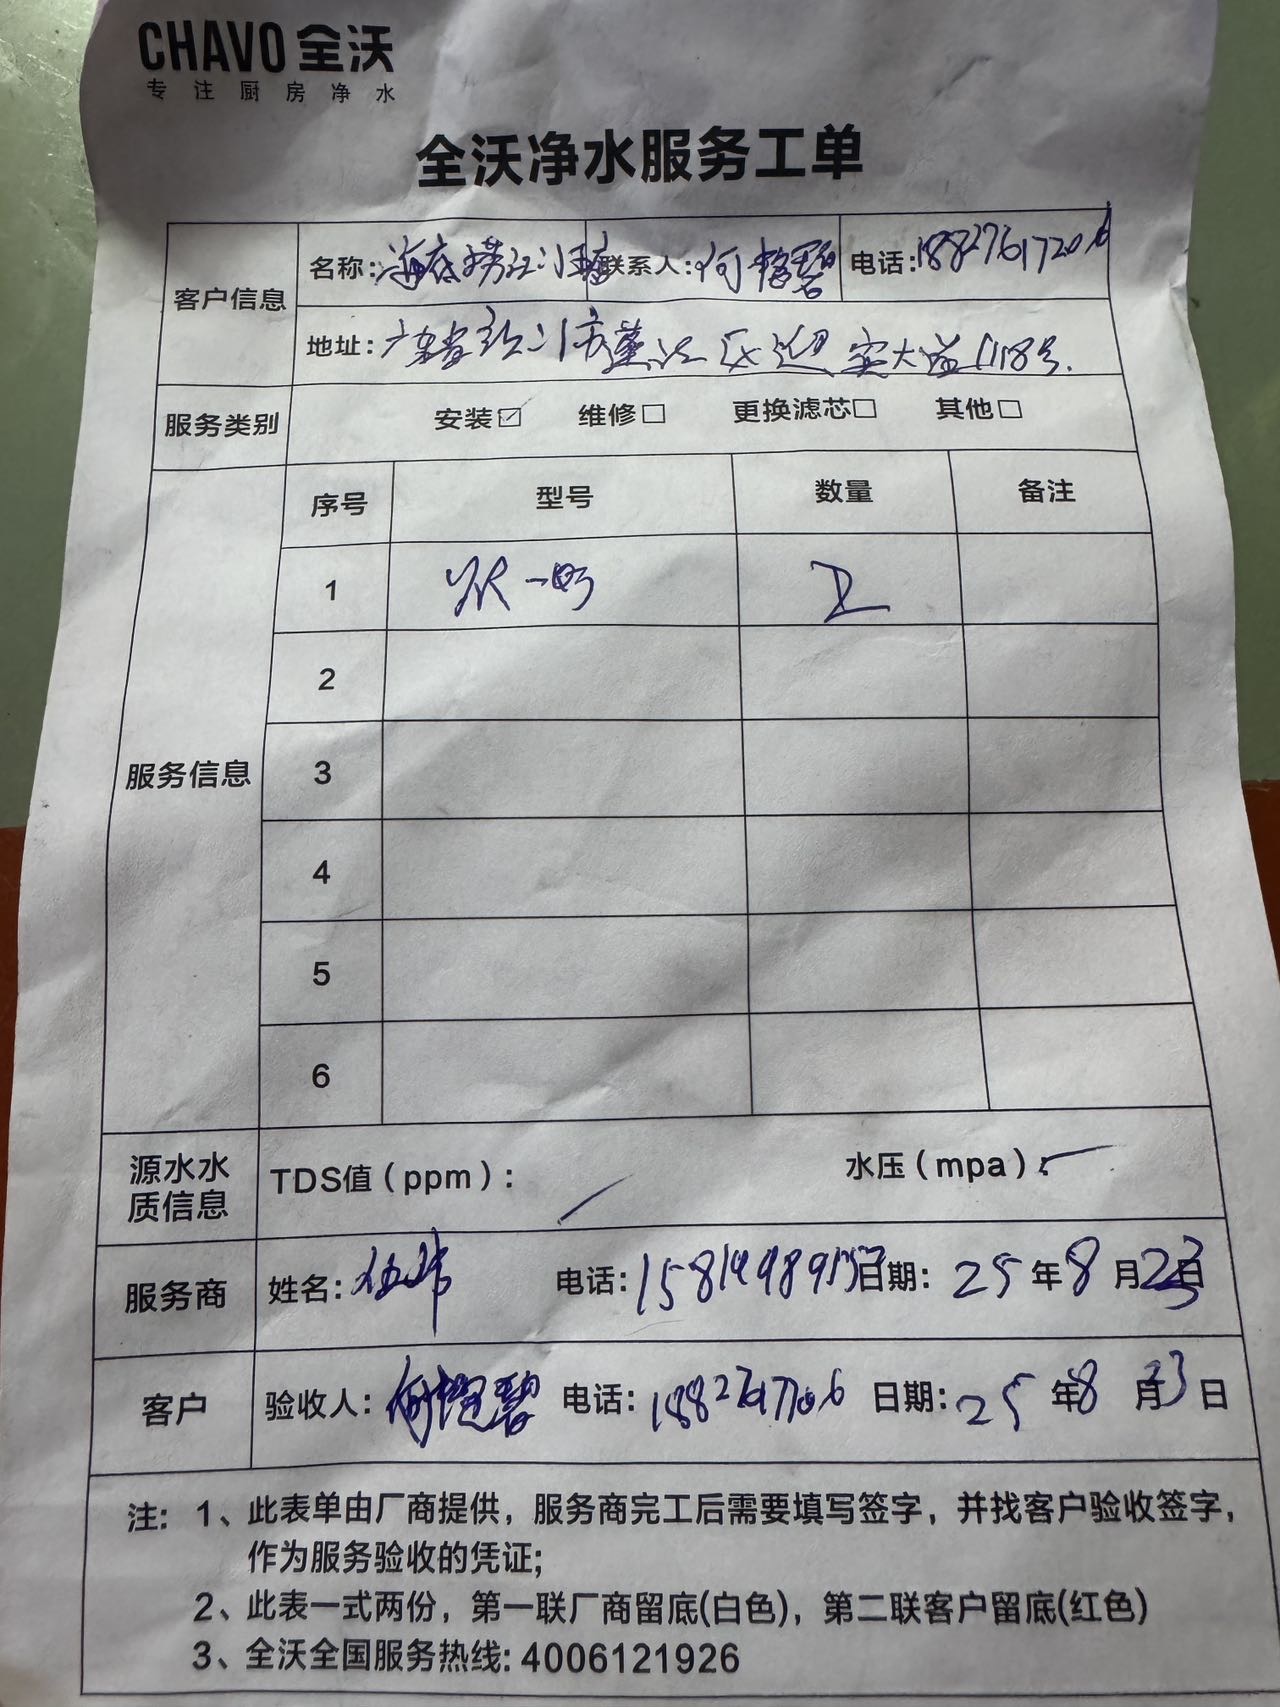 CHAVO 全沃
专注厨房净水
全沃净水服务工单
客户信息 名称:海底捞江门 联系人:何 碧 电话:
地址:广东省江门市蓬江区迎宾大道118号.
服务类别 安装☑ 维修□ 更换滤芯□ 其他□
服务信息 序号 型号 数量 备注
1
2
3
4
5
6
源水水质信息 TDS值(ppm): 水压(mpa):
服务商 姓名: 电话: 日期: 25 年 8 月 23 日
客户 验收人:何 碧 电话: 日期: 25 年 8 月 23 日
注: 1、此表单由厂商提供，服务商完工后需要填写签字，并找客户验收签字，
作为服务验收的凭证;
2、此表一式两份，第一联厂商留底(白色)，第二联客户留底(红色)
3、全沃全国服务热线: 4006121926